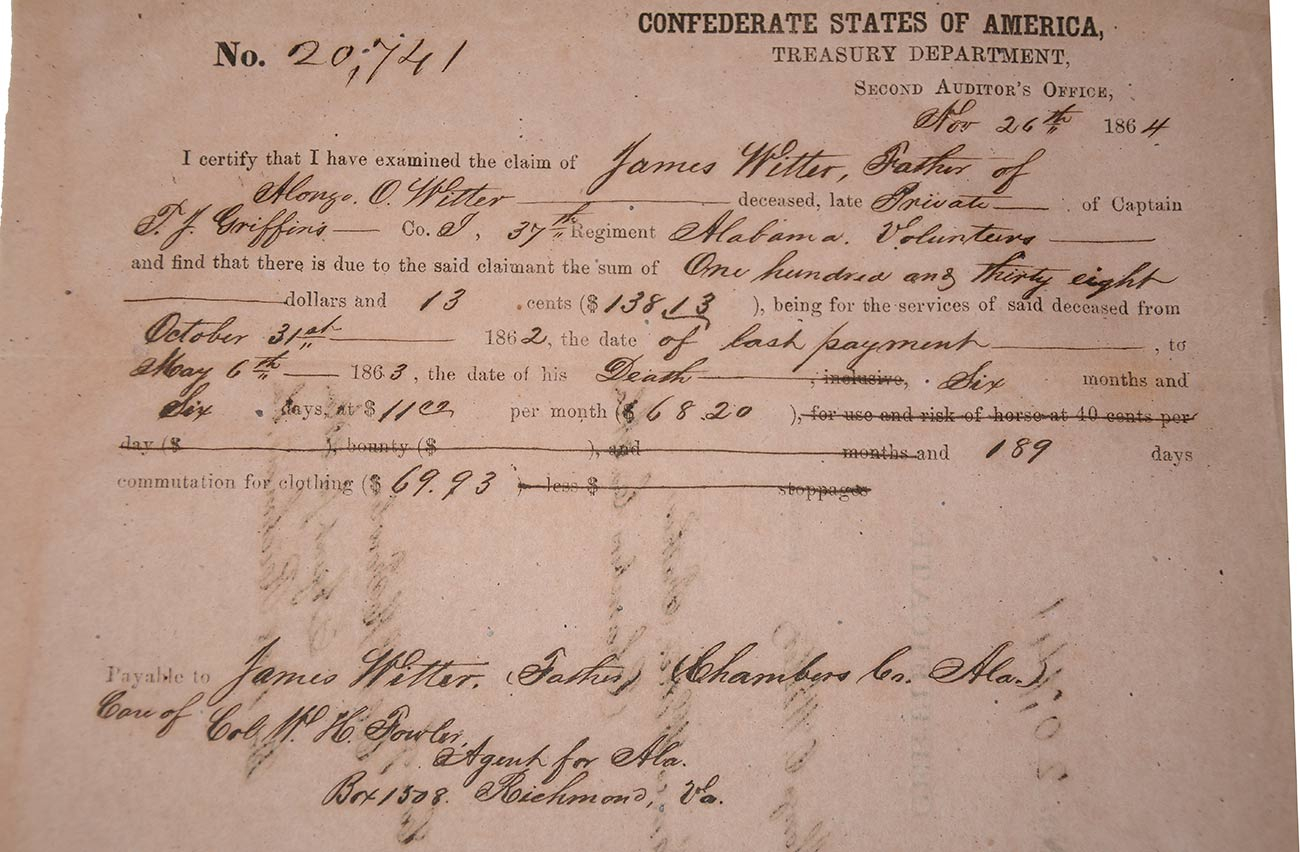 CONFEDERATE STATES OF AMERICA,
No. 20,741
TREASURY DEPARTMENT,
SECOND AUDITOR'S OFFICE,
Nov 26th 1864
I certify that I have examined the claim of James Witter, Father of
Alonzo. O. Witter deceased, late Private of Captain
T. J. Griffins Co. I, 37th Regiment Alabama. Volunteers
and find that there is due to the said claimant the sum of One hundred and thirty eight
dollars and 13 cents ($138.13 ), being for the services of said deceased from
October 31st 1862, the date of last payment, to
May 6th 1863, the date of his Death, inclusive, Six months and
Six days, at $11.00 per month ($68.20 ), for use and risk of horse at 40 cents per
day ($ ), bounty ($ ), and months and 189 days
commutation for clothing ($69.93 ), less $ stoppages
Payable to James Witter. (Father) (Chambers Co. Ala.)
Care of Col. W. H. Fowler,
Agent for Ala.
Box 1508. Richmond, Va.
CERTIFICATE